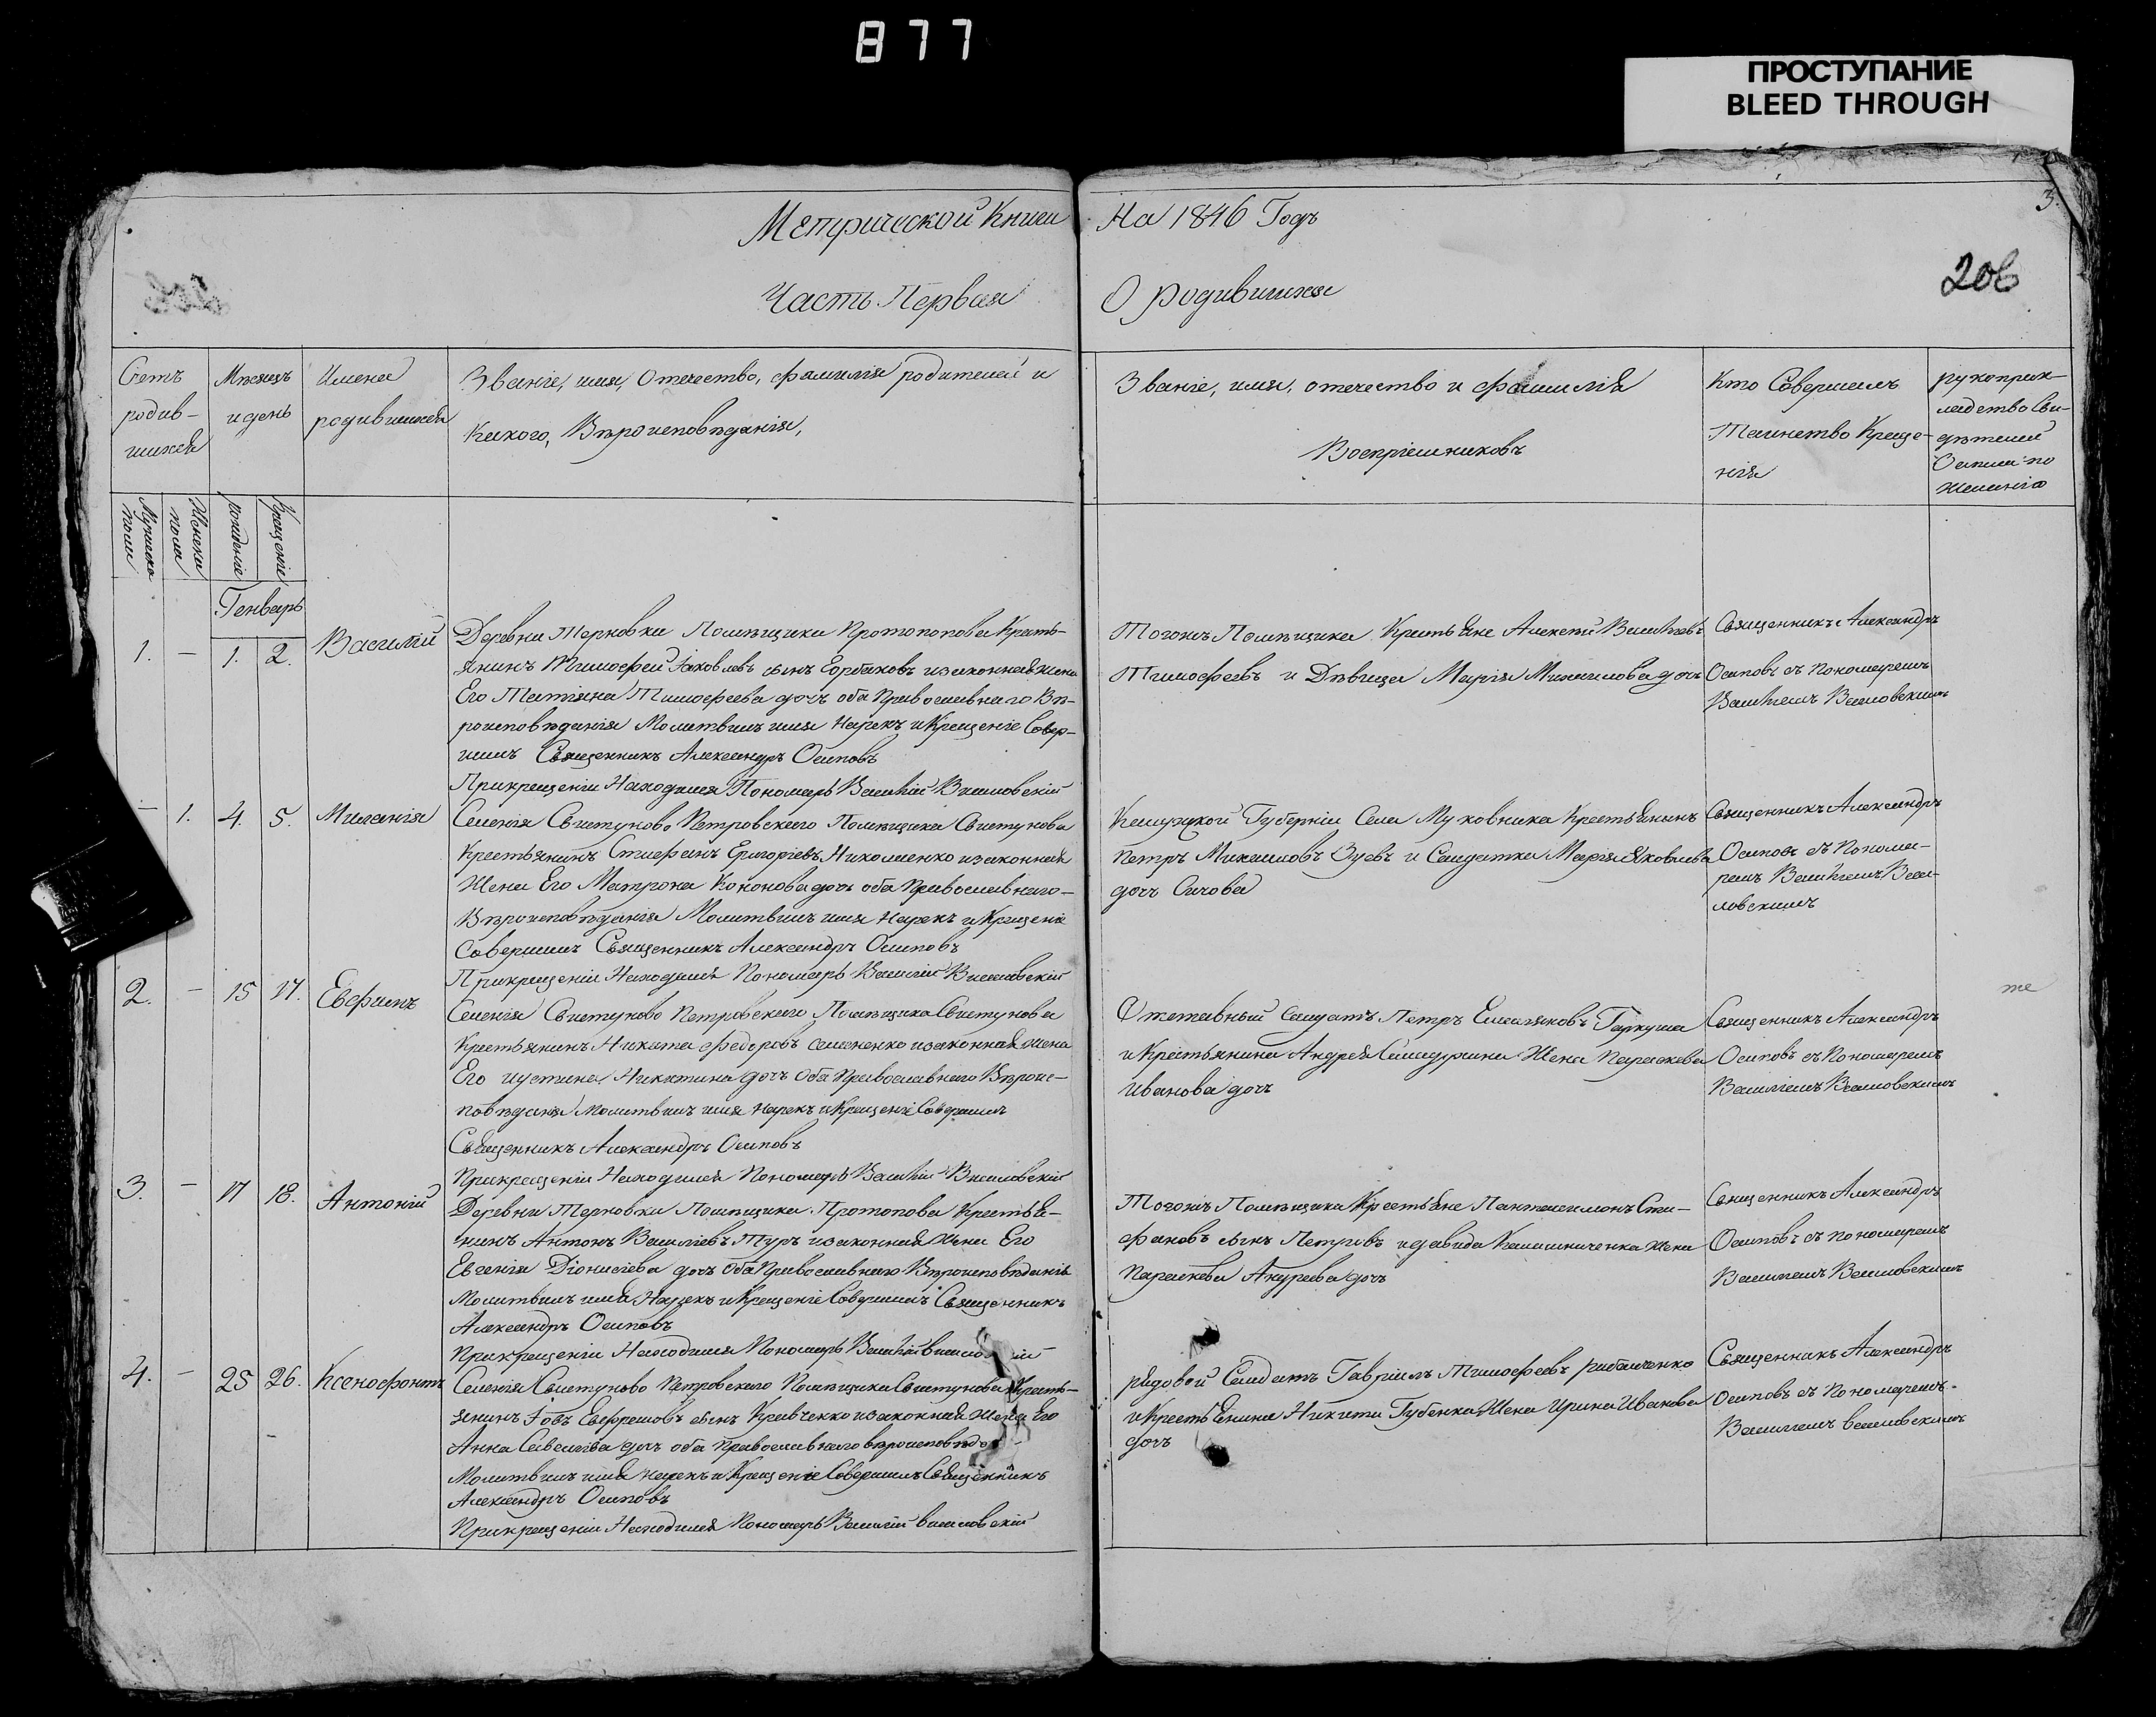 877
ПРОСТУПАНИЕ
BLEED THROUGH
3.
Метрической Книги На 1846 Годъ
206
Часть Первая О родившихся
Счетъ родив-шихся
Мѣсяцъ и день
Имена родившихся
Званіе, имя, Отечество, фамилія родителей и
Какого, Вѣроисповѣданія,
Званіе, имя, отечество и фамилія
Воспріемниковъ
Кто Совершалъ
Таинство Креще-
нія
рукоприк-
ладство Сви-
дѣтелей
Записи по
желанію
Мужеска пола
Женска пола
рожденіе
Крещеніе
Генварь
1. — 1. 2. Василій
Деревни Терновки Помѣщика Протопопова Кресть-
янинъ Тимофей Іаковлевъ сынъ Горбаковъ изаконная жена
Его Татіяна Тимофеева дочъ оба Православнаго Вѣ-
роисповѣданія Молитвилъ имя Нарекъ и Крещеніе Совер-
шилъ Священникъ Александръ Осиповъ
Прикрещеніи Находился Пономарь Василій Василовскій
Тогожъ Помѣщика Крестьяне Алексѣй Васильевъ
Тимофеевъ и Дѣвица Марія Михаилова дочъ
Священникъ Александръ
Осиповъ съ пономаремъ
Василіемъ Василовскимъ
— 1. 4. 5. Миланія
Селенія Свистуново Петровскаго Помѣщика Свистунова
Крестьянинъ Стефанъ Григоріевъ Николаенко изаконная
Жена Его Матрона Кононова дочь оба Православнаго—
Вѣроисповѣданія Молитвилъ имя Нарекъ и Крещеніе
Совершилъ Священникъ Александръ Осиповъ
Прикрещеніи Находился Пономарь Василій Василовскій
Калужской Губерніи Села Муковника Крестьянинъ
Петръ Михаиловъ Зуевъ и Салдатка Марія Яковлева
дочъ Сичова
Священникъ Александръ
Осиповъ съ Понома-
ремъ Василіемъ Васи-
ловскимъ
2. — 15 17. Евфимъ
Селенія Свистуново Петровскаго Помѣщика Свистунова
Крестьянинъ Никита Федоровъ Семененко изаконная жена
Его Иустина Никитина дочъ Оба Православнаго Вѣроис-
повѣданія Молитвилъ имя Нарекъ и Крещеніе Совершилъ
Священникъ Александръ Осиповъ
Прикрещеніи Находился Пономарь Василій Василовскій
Отставный Салдатъ Петръ Емельяновъ Гаркуша
и Крестьянина Андрея жена Параскева
Иванова дочъ
Священникъ Александръ
Осиповъ съ Пономаремъ
Василіемъ Василовскимъ
3. — 17 18. Антоній
Деревни Терновки Помѣщика Протопопова Крестья-
нинъ Антонъ Василіевъ Туръ изаконная жена Его
Евгенія Діонисіева дочъ Оба Православнаго Вѣроисповѣданія
Молитвилъ имя Нарекъ и Крещеніе Совершилъ Священникъ
Александръ Осиповъ
Прикрещеніи Находился Пономарь Василій
Тогожъ Помѣщика Крестьяне Пантелеимонъ Сте-
фановъ сынъ Петровъ и Давида Калашниченка жена
Параскева Андреева дочъ
Священникъ Александръ
Осиповъ съ пономаремъ
Василіемъ Василовскимъ
4. — 25 26. Ксенофонтъ
Селенія Свистуново Петровскаго Помѣщика Свистунова Кресть-
янинъ Іовъ Евфремовъ сынъ Кравченко изаконная жена Его
Анна Савельева дочъ оба православнаго
Молитвилъ имя нарекъ и Крещеніе Совершилъ Священникъ
Александръ Осиповъ
Прикрещеніи Находился Пономарь Василій Василовскій
рядовой Салдатъ Гавріилъ Тимофеевъ Рибалченко
и Крестьянина Никити Губенка Жена Ирина Иванова
дочъ
Священникъ Александръ
Осиповъ съ Пономаремъ
Василіемъ Василовскимъ